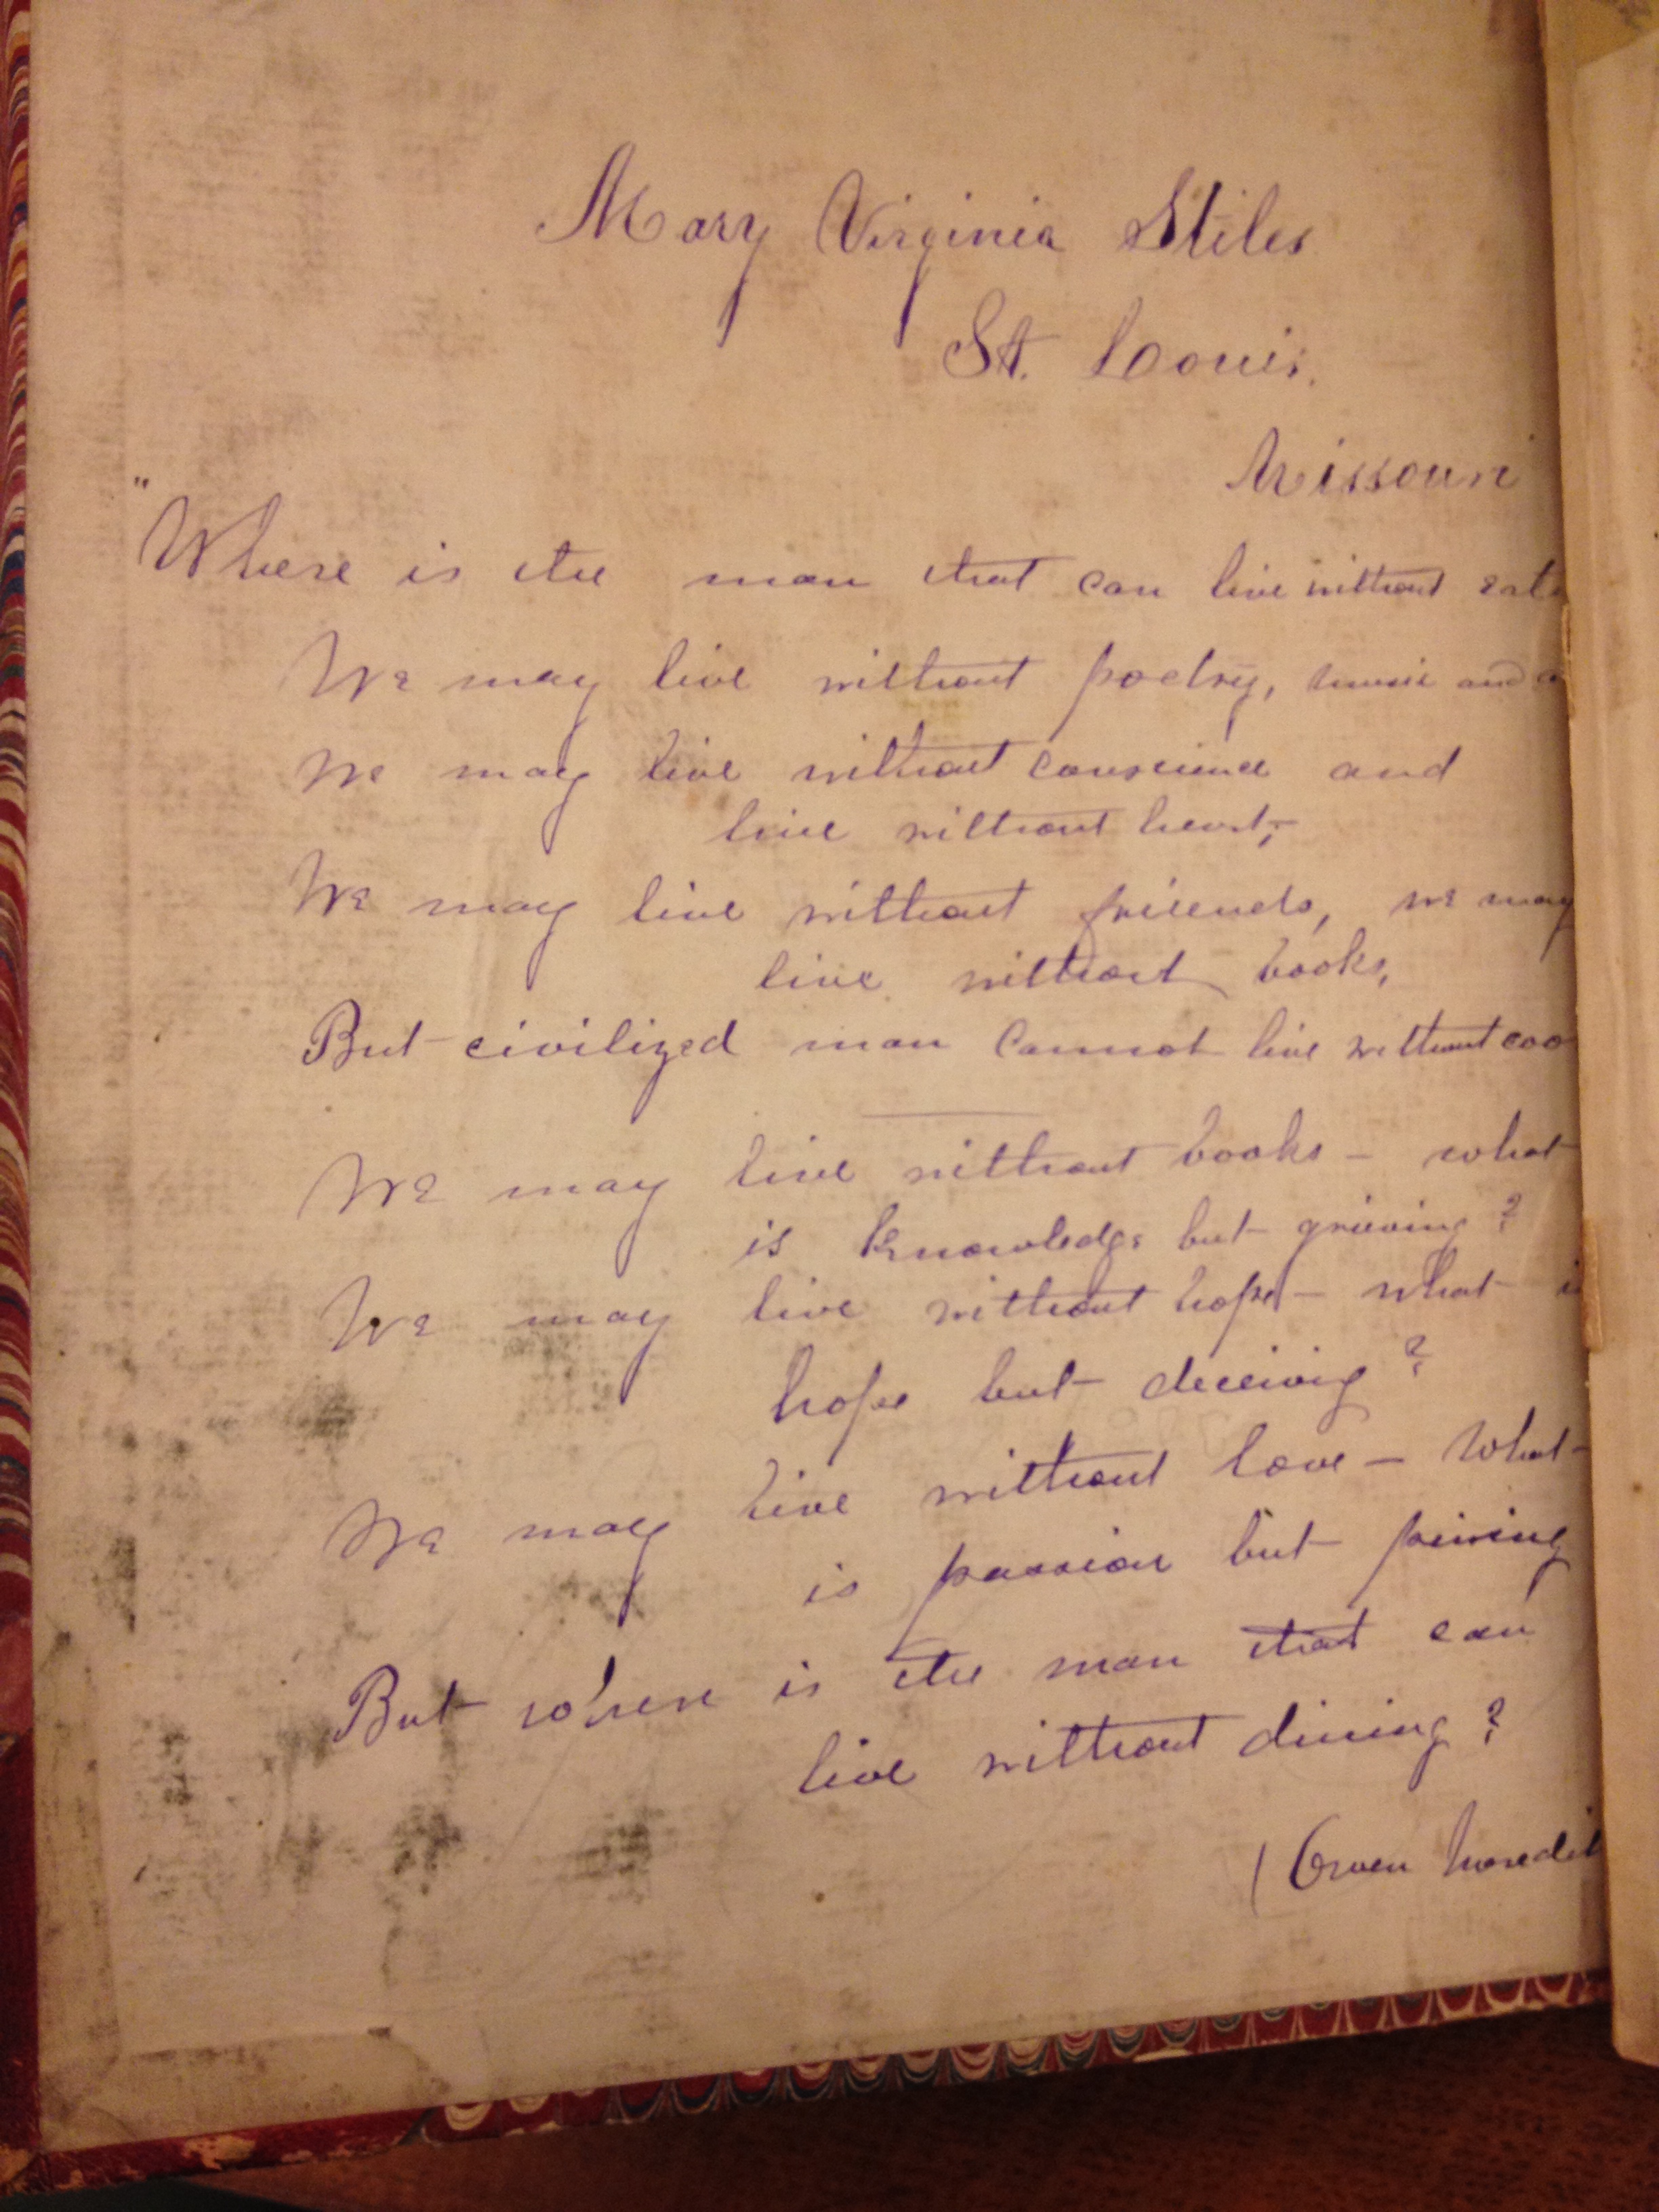 Mary Virginia Stiles
St. Louis.
Missouri
"Where is the man that can live without eat
We may live without poetry, music and a
We may live without conscience and
live without heart;
We may live without friends, we may
live without books,
But civilized man cannot live without coo
We may live without books - what
is knowledge but grieving?
We may live without hope - what is
hope but deceiving?
We may live without love - what
is passion but pining
But where is the man that can
live without dining?
(Owen Meredit